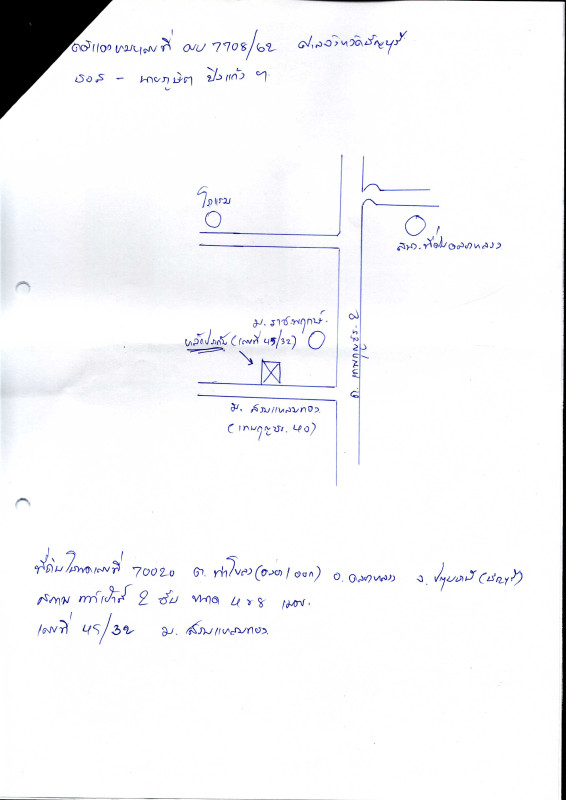 คดีแดงหมายเลขที่ ผบ 7708/62 ศาลจังหวัดธัญบุรี
ธอส - นายภูษิต ปิงแก้ว ฯ
โรงแรม
สนง. ที่ดิน คลองหลวง
ม. ราชพฤกษ์
(เลขที่ 45/32)
ถ.
ม. สวนแหลมทอง
(เทพกุญชร. 40)
ที่ดินโฉนดเลขที่ 70020 ต. ท่าโขลง (คลอง 1 ออก) อ. คลองหลวง จ. ปทุมธานี (ธัญบุรี)
ทาวน์เฮ้าส์ 2 ชั้น ขนาด 4 x 8 เมตร.
เลขที่ 45/32 ม. สวนแหลมทอง